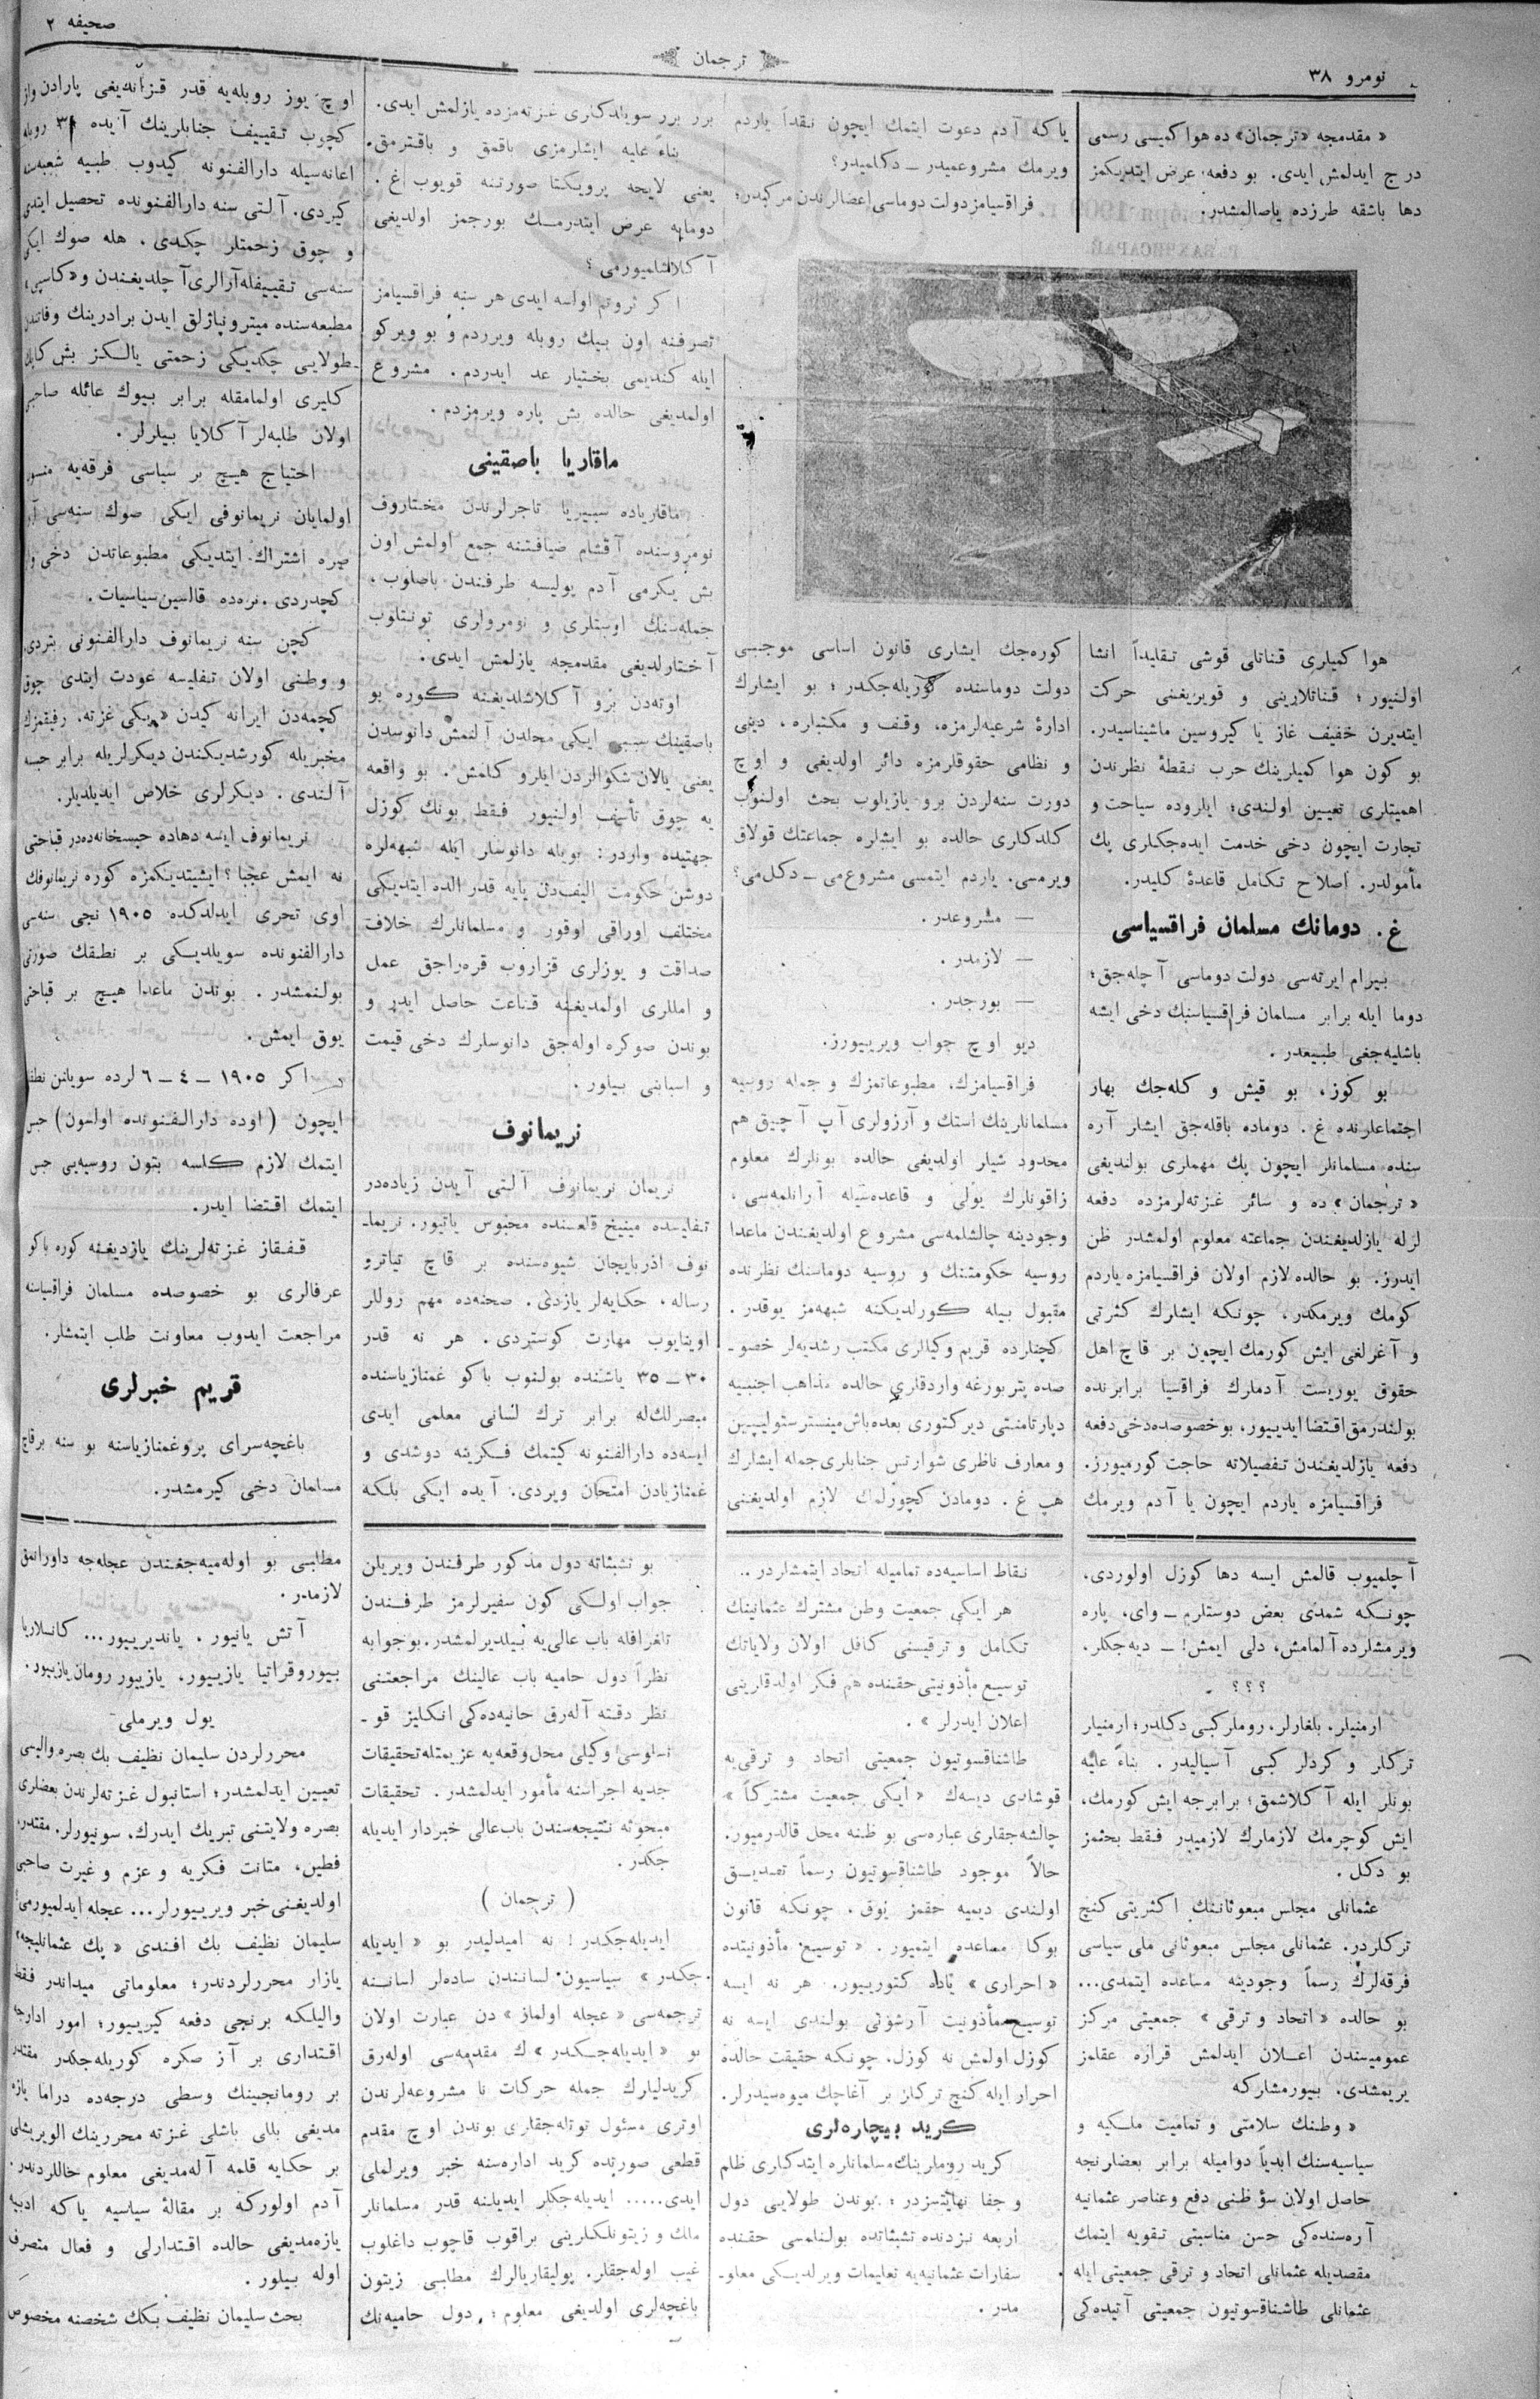 نومرو ٣٨
ترجمان
صحیفه ٢
« مقدمجه «ترجمان» ده هوا کمیسی رسمی
درج ایدلمش ایدی. بو دفعه عرض ایتدیکمز
دها باشقه طرزده یاصالمشدر.
هوا کمیلری قناتلی قوشی تقلیداً انشا
اولنیور؛ قناتلارینی و قویریغنی حرکت
ایتدیرن خفیف غاز یا کیروسین ماشیناسیدر.
بو کون هوا کمیلرینك حرب نقطهٔ نظرندن
اهمیتلری تعیین اولندی؛ ایلروده سیاحت و
تجارت ایچون دخی خدمت ایده‌جکلری پك
مأمولدر. اصلاح تکامل قاعدهٔ کلیدر.
غ. دومانك مسلمان فراقسیاسی
بیرام ایرته‌سی دولت دوماسی آچله‌جق؛
دوما ایله برابر مسلمان فراقسیاسنك دخی ایشه
باشلیه‌جغی طبیعدر.
بو کوز، بو قیش و کله‌جك بهار
اجتماعلرنده غ. دوماده باقله‌جق ایشلر آره
سنده مسلمانلر ایچون پك مهملری بولندیغی
«ترجمان» ده و سائر غزته‌لرمزده دفعه
لرله یازلدیغندن جماعته معلوم اولمشدر ظن
ایدرز. بو حالده لازم اولان فراقسیامزه یاردم
کومك ویرمکدر، چونکه ایشلرك کثرتی
و آغرلغی ایش کورمك ایچون بر قاچ اهل
حقوق یوریست آدملرك فراقسیا برابرنده
بولندرمق اقتضا ایدییور، بو خصوصده دخی دفعه
دفعه یازلدیغندن تفصیلاته حاجت کورمیورز.
فراقسیامزه یاردم ایچون یا آدم ویرمك
یا که آدم دعوت ایتمك ایچون نقداً یاردم
ویرمك مشروعمیدر ــ دکلمیدر؟
فراقسیامز دولت دوماسی اعضالرندن مرکبدر؛
کوره‌جك ایشلری قانون اساسی موجبسی
دولت دوماسنده کوریله‌جکدر؛ بو ایشلرك
ادارهٔ شرعیه‌لرمزه، وقف و مکتبلره، دینی
و نظامی حقوقلرمزه دائر اولدیغی و اوچ
دورت سنه‌لردن برو یازیلوب بحث اولنوب
کلدکلری حالده بو ایشلره جماعتك قولاق
ویرمسی. یاردم ایتمسی مشروع‌می ــ دکل‌می؟
ــ مشروعدر.
ــ لازمدر.
ــ بورجدر.
دیو اوچ جواب ویرییورز.
فراقسیامزك، مطبوعاتمزك و جمله روسیه
مسلمانلرینك استك و آرزولری آپ آچیق هم
محدود شیلر اولدیغی حالده بونلرك معلوم
زاقونلرك یولی و قاعده‌سیله آرانلمه‌سی،
وجودینه چالشلمه‌سی مشروع اولدیغندن ماعدا
روسیه حکومتنك و روسیه دوماسنك نظرنده
مقبول بیله کورلدیکنه شبهه‌مز یوقدر.
کچنلرده قریم وکیللری مکتب رشدیه‌لر خصو-
صده پتربورغه واردقلری حالده مذاهب اجنبیه
دپارتامنتی دیرکتوری بعده باش مینستر ستولیپین
و معارف ناظری شوارتس جنابلری جمله ایشلرك
هپ غ. دومادن کچورلمك لازم اولدیغنی
برر برر سویلدکلری غزته‌مزده یازلمش ایدی.
بناءً علیه ایشلرمزی باقمق و باقترمق.
یعنی لایحه پرویکتا صورتنه قویوب غ.
دومایه عرض ایتدرمك بورجمز اولدیغی
آکلاشلمیورمی؟
اکر ثروتم اولسه ایدی هر سنه فراقسیامز
تصرفنه اون بیك روبله ویرردم و بو ویرکو
ایله کندیمی بختیار عد ایدردم. مشروع
اولمدیغی حالده بش پاره ویرمزدم.
ماقاریا باصقینی
ماقاریاده سیبیریا تاجرلرندن مختاروف
نومروسنده آقشام ضیافتنه جمع اولمش اون
بش یکرمی آدم پولیسه طرفندن باصلوب،
جمله‌سنك اوستلری و نومرولری تونتلوب
آختارلدیغی مقدمجه یازلمش ایدی.
اوته‌دن برو آکلاشلدیغنه کوره بو
باصقینك سببی ایکی محلدن آلنمش دانوسدن
یعنی یالان شکوالردن ایلرو کلمش. بو واقعه
یه چوق تأسف اولنیور فقط بونك کوزل
جهتیده واردر: بویله دانوسلر ایله شبهه‌لره
دوشن حکومت الیف‌دن یایه قدر الده ایتدیکی
مختلف اوراقی اوقور و مسلمانلرك خلاف
صداقت و یوزلری قزاروب قره‌راجق عمل
و امللری اولمدیغنه قناعت حاصل ایدر و
بوندن صوکره اوله‌جق دانوسلرك دخی قیمت
و اسبابنی بیلور.
نریمانوف
نریمان نریمانوف آلتی آیدن زیاده‌در
تفلیسده میتیخ قلعسنده محبوس یاتیور. نریما-
نوف اذربایجان شیوه‌سنده بر قاچ تیاترو
رساله، حکایه‌لر یازدی. صحنه‌ده مهم روللر
اوینایوب مهارت کوستردی. هر نه قدر
٣٠ــ٣٥ یاشنده بولنوب باکو غمنازیاسنده
میصرلك‌له برابر ترك لسانی معلمی ایدی
ایسه‌ده دارالفنونه کیتمك فکرینه دوشدی و
غمنازیادن امتحان ویردی. آیده ایکی بلکه
اوچ یوز روبله‌یه قدر قزانه‌یغی پارادن واز
کچوب تقییف جنابلرینك آیده ٣١ روبله
اعانه‌سیله دارالفنونه کیدوب طبیه شعبه‌سنه
کیردی. آلتی سنه دارالفنونده تحصیل ایتدی
و چوق زحمتلر چکدی. هله صوك ایکی
سنه‌سی تقییفله آرالری آچلدیغندن و «کاسپی»
مطبعه‌سنده میترونپاژلق ایدن برادرینك وفاتندن
طولایی چکدیکی زحمتی یالکز بش کاپك
کلیری اولمامقله برابر بیوك عائله صاحبی
اولان طلبه‌لر آکلایا بیلرلر.
احتیاج هیچ بر سیاسی فرقه‌یه منسوب
اولمایان نریمانوفی ایکی صوك سنه‌سی آره
صره اشتراك ایتدیکی مطبوعاتدن دخی واز
کچدردی. نره‌ده قالسین سیاسیات.
کچن سنه نریمانوف دارالفنونی بتردی
و وطنی اولان تفلیسه عودت ایتدی چوق
کچمه‌دن ایرانه کیدن «یکی غزته» رفیقمزك
مخبریله کورشدیکندن دیکرلریله برابر حبسه
آلندی. دیکرلری خلاص ایدیلدیلر.
نریمانوف ایسه دهاده حبسخانه‌ده‌در قباحتی
نه ایمش عجبا؟ ایشیتدیکمزه کوره نریمانوفك
اوی تحری ایدلدکده ١٩٠٥ نجی سنه‌سی
دارالفنونده سویلدیکی بر نطقك صورتی
بولنمشدر. بوندن ماعدا هیچ بر قباحتی
یوق ایمش.
اکر ١٩٠٥ ــ ٤ ــ ٦ لرده سویلنن نطقلر
ایچون (اوده دارالفنونده اولسون) حبس
ایتمك لازم کلسه بتون روسیه‌یی حبس
ایتمك اقتضا ایدر.
قفقاز غزته‌لرینك یازدیغنه کوره باکو
عرفالری بو خصوصده مسلمان فراقسیاسنه
مراجعت ایدوب معاونت طلب ایتمشلر.
قریم خبرلری
باغچه‌سرای پروغمنازیاسنه بو سنه بر قاچ
مسلمان دخی کیرمشدر.
آچلمیوب قالمش ایسه دها کوزل اولوردی.
چونکه شمدی بعض دوستلرم ــ وای، پاره
ویرمشلرده آلمامش، دلی ایمش! ــ دیه‌جکلر.
؟؟؟
ارمنیلر، بلغارلر، روملر کبی دکلدر؛ ارمنیلر
ترکلر و کردلر کبی آسیالیدر. بناءً علیه
بونلر ایله آکلاشمق؛ برابرجه ایش کورمك،
ایش کوچرمك لازملرك لازمیدر فقط بحثمز
بو دکل.
عثمانلی مجلس مبعوثاننك اکثریتی کنج
ترکلردر. عثمانلی مجلس مبعوثانی ملی سیاسی
فرقه‌لرك رسماً وجودینه مساعده ایتمدی...
بو حالده «اتحاد و ترقی» جمعیتی مرکز
عمومیسندن اعلان ایدلمش قراره عقلمز
یریمشدی. بیورمشلرکه
« وطنك سلامتی و تمامیت ملکیه و
سیاسیه‌سنك ابدیاً دوامیله برابر بعضلرنجه
حاصل اولان سؤ ظنی دفع و عناصر عثمانیه
آره‌سنده‌کی حسن مناسبتی تقویه ایتمك
مقصدیله عثمانلی اتحاد و ترقی جمعیتی ایله
عثمانلی طاشناقسوتیون جمعیتی آتیده‌کی
نقاط اساسیه‌ده تمامیله اتحاد ایتمشلردر..
هر ایکی جمعیت وطن مشترك عثمانینك
تکامل و ترقیسنی کافل اولان ولایاتك
توسیع مأذونیتی حقنده هم فکر اولدقلرینی
اعلان ایدرلر».
طاشناقسوتیون جمعیتی اتحاد و ترقی‌یه
قوشلدی دیسه‌ك «ایکی جمعیت مشترکاً»
چالشه‌جقلری عباره‌سی بو ظنه محل قالدرمیور.
حالاً موجود طاشناقسوتیون رسماً تصدیق
اولندی دیمیه حقمز یوق. چونکه قانون
بوکا مساعده ایتمیور. «توسیع مأذونیتده
«احراری» یاده کتورییور. هر نه ایسه
توسیع مأذونیت آرشوتی بولندی ایسه نه
کوزل اولمش نه کوزل. چونکه حقیقت حالده
احرار ایله کنج ترکلر بر آغاجك میوه‌سیدرلر.
کرید بیچاره‌لری
کرید روملرینك مسلمانلره ایتدکلری ظلم
و جفا نهایتسزدر؛ بوندن طولایی دول
اربعه نزدنده تشبثاتده بولنلمسی حقنده
سفارات عثمانیه‌یه تعلیمات ویرلدیکی معلو-
مدر.
بو تشبثاته دول مذکور طرفندن ویریلن
جواب اولکی کون سفیرلرمز طرفندن
تلغرافله باب عالی‌یه بیلدیرلمشدر. بو جوابه
نظراً دول حامیه باب عالینك مراجعتنی
نظر دقته آله‌رق حانیه‌ده‌کی انکلیز قو-
نسلوسی وکیلی محل وقعه‌یه عزیمتله تحقیقات
جدیه اجراسنه مأمور ایدلمشدر. تحقیقات
مبحوثه نتیجه‌سندن باب عالی خبردار ایدیله
جکدر.
(ترجمان)
ایدیله‌جکدر! نه امیدلیدر بو «ایدیله
جکدر» سیاسیون لسانندن ساده‌لر لسانسنه
ترجمه‌سی «عجله اولماز» دن عبارت اولان
بو «ایدیله‌جکدر» ك مقدمه‌سی اوله‌رق
کریدلیلرك جمله حرکات نا مشروعه‌لرندن
اوتری مسئول توتله‌جقلری بوندن اوچ مقدم
قطعی صورتده کرید اداره‌سنه خبر ویرلملی
ایدی..... ایدیله‌جکلر ایدیلنه قدر مسلمانلر
ملك و زیتونلکلرینی براقوب قاچوب داغلوب
غیب اوله‌جقلر. پولیقاریالرك مطلبی زیتون
باغچه‌لری اولدیغی معلوم؛ دول حامیه‌نك
مطلبی بو اوله‌میه‌جغندن عجله‌جه داورانمق
لازمدر.
آتش یانیور. یاندیرییور... کانسلاریا
بیوروقراتیا یازییور، یازییور رومان یازییور.
یول ویرملی
محررلردن سلیمان نظیف بك بصره والیسی
تعیین ایدلمشدر؛ استانبول غزته‌لرندن بعضلری
بصره ولایتنی تبریك ایدرك، سونیورلر. مقتدر،
فطین، متانت فکریه و عزم و غیرت صاحبی
اولدیغنی خبر ویرییورلر... عجله ایدلمیورمی؟
سلیمان نظیف بك افندی «پك عثمانلیجه»
یازار محررلردندر؛ معلوماتی میداندر فقط
والیلکه برنجی دفعه کیرییور؛ امور اداریه
اقتداری بر آز صکره کوریله‌جکدر مقتدر
بر رومانجینك وسطی درجه‌ده دراما یازه
مدیغی بللی باشلی غزته محررینك الویریشلی
بر حکایه قلمه آله‌مدیغی معلوم حاللردندر.
آدم اولورکه بر مقالهٔ سیاسیه یا که ادبیه
یازه‌مدیغی حالده اقتدارلی و فعال متصرف
اوله بیلور.
بحث سلیمان نظیف بکك شخصنه مخصوص